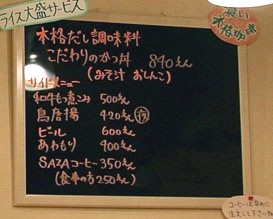 ライス大盛サービス
濃い
本格珈琲
本格だし調味料
こだわりのかつ丼 840えん
(みそ汁 おしんこ)
サイドメニュー
和牛もつ煮こみ 500えん
鳥唐揚 420えん 夜
ビール 600えん
あわもり 400えん
SAZAコーヒー 350えん
(食事の方250えん)
コーヒーは早めに
注文して下さいね